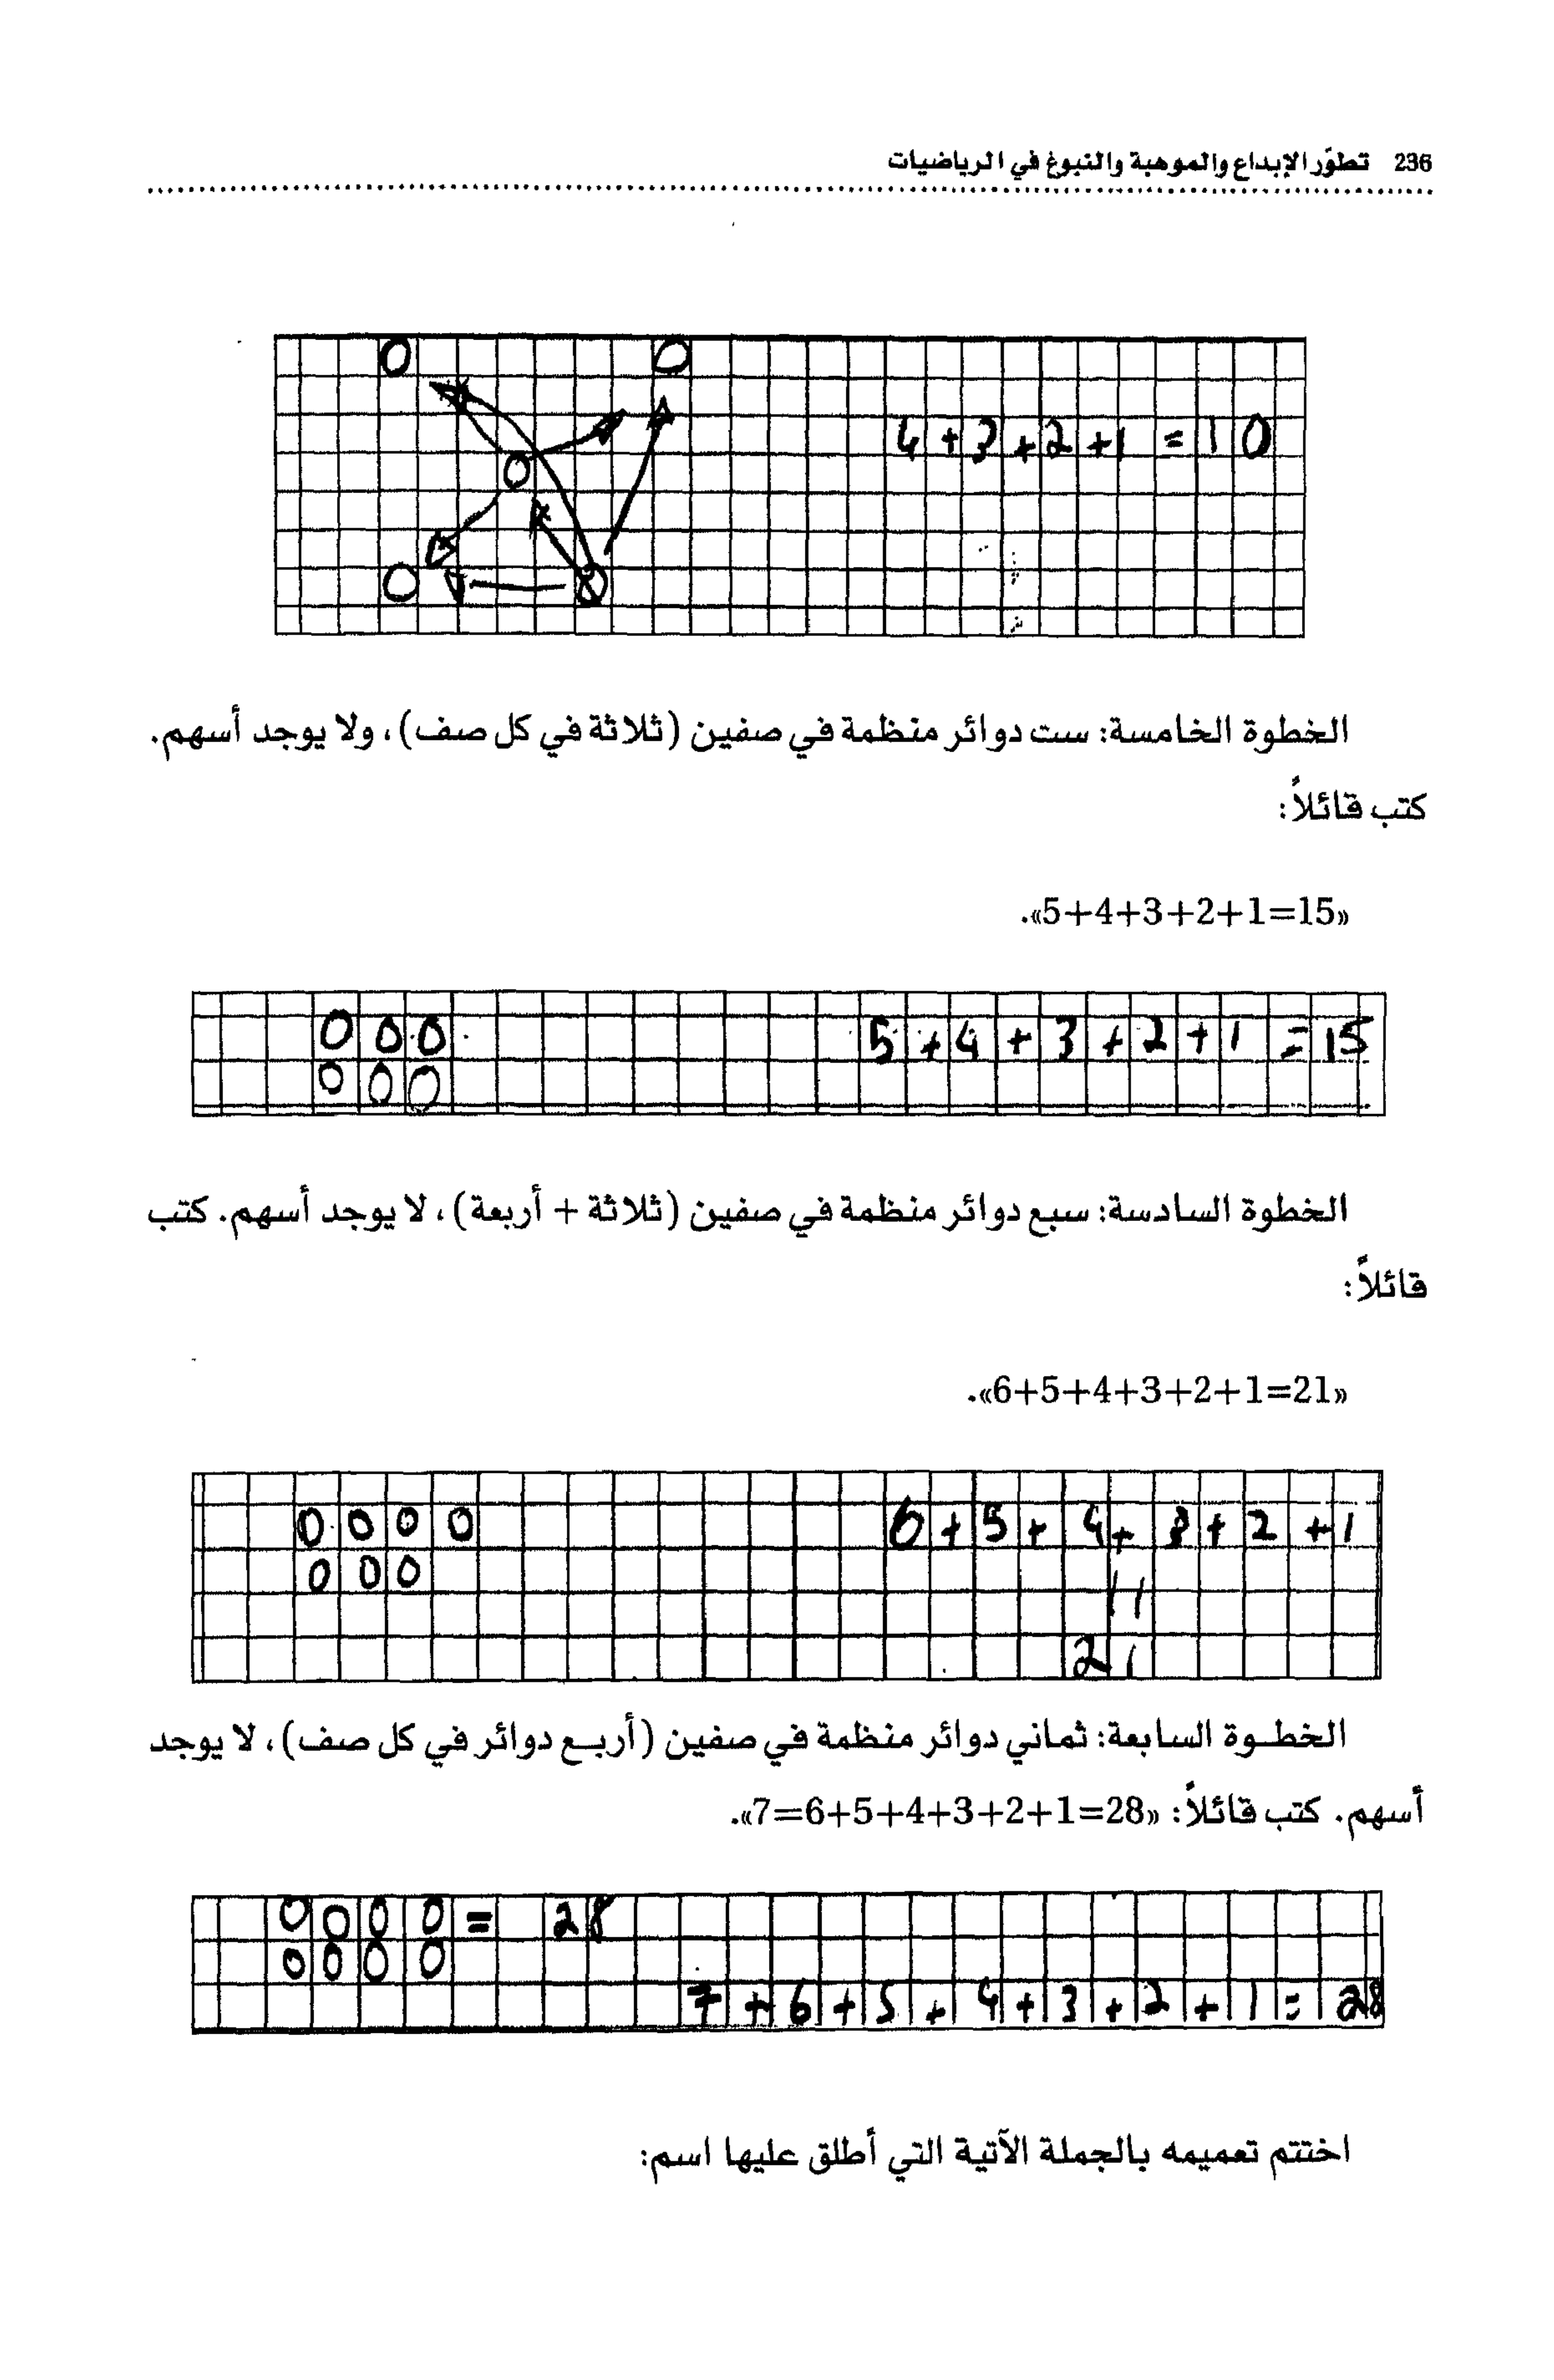 236 تطوّر الإبداع والموهبة والنبوغ في الرياضيات
4+3+2+1=10
الخطوة الخامسة: ست دوائر منظمة في صفين (ثلاثة في كل صف)، ولا يوجد أسهم.
كتب قائلاً:
«5+4+3+2+1=15».
5+4+3+2+1=15
الخطوة السادسة: سبع دوائر منظمة في صفين (ثلاثة + أربعة)، لا يوجد أسهم. كتب
قائلاً:
«6+5+4+3+2+1=21».
6+5+4+3+2+1
11
21
الخطوة السابعة: ثماني دوائر منظمة في صفين (أربع دوائر في كل صف)، لا يوجد
أسهم. كتب قائلاً: «7=6+5+4+3+2+1=28».
= 28
7+6+5+4+3+2+1=28
اختتم تعميمه بالجملة الآتية التي أطلق عليها اسم: